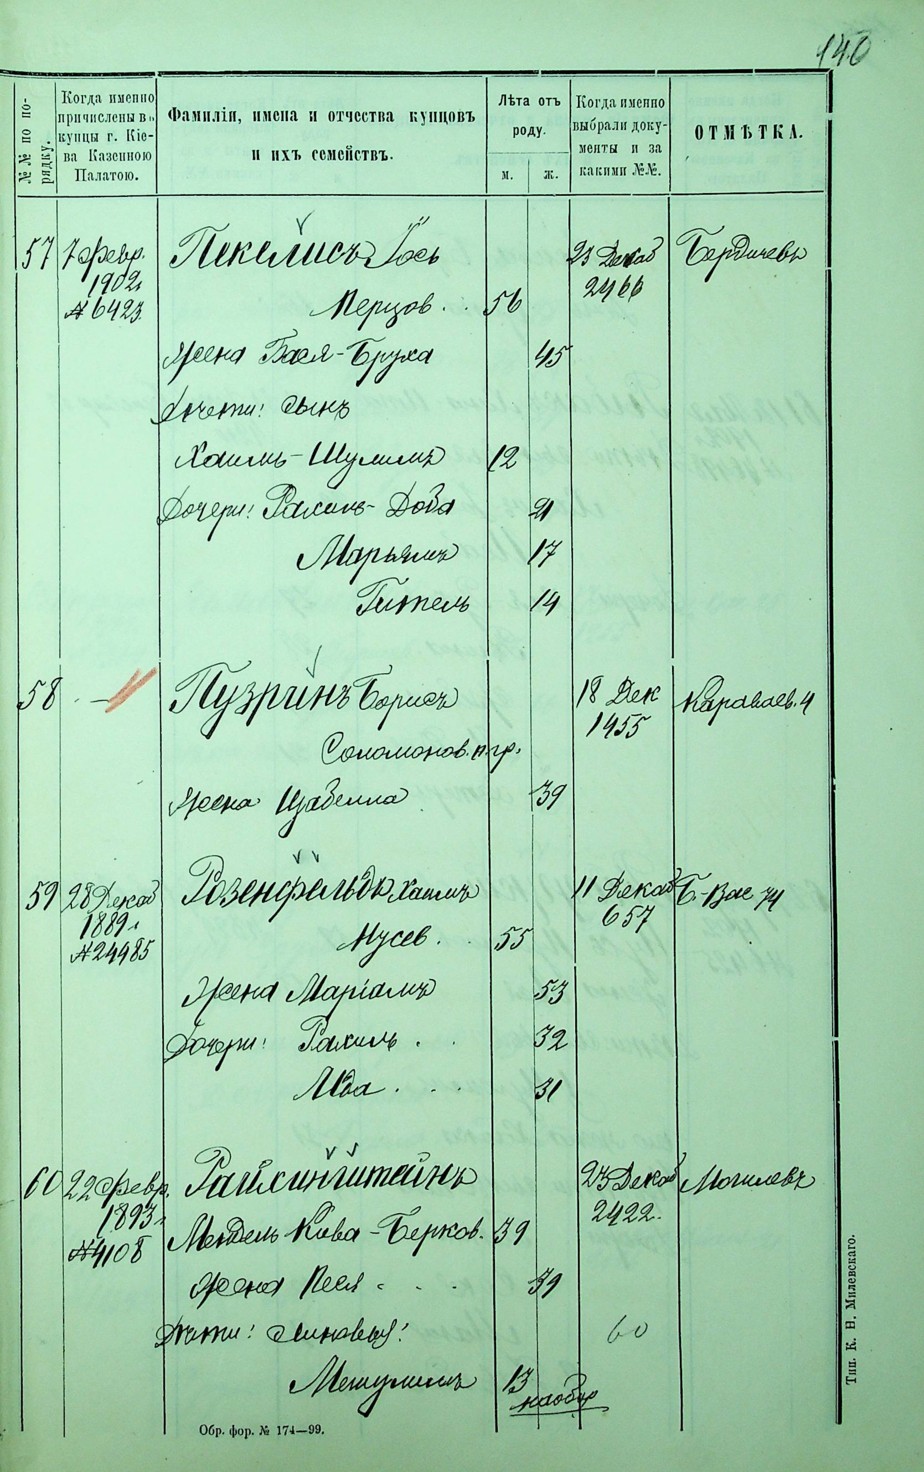 140
№№ по порядку.
Когда именно причислены въ купцы г. Кіева Казенною Палатою.
Фамиліи, имена и отчества купцовъ и ихъ семействъ.
Лѣта отъ роду.
м. ж.
Когда именно выбрали документы и за какими №№.
ОТМѢТКА.
57 7 февр. Пекелисъ Іось 23 Декаб Бердичевъ
1902 г. 2466
№ 6423 Перцов. 56
Жена Бася-Бруха 45
Дѣти: Сынъ
Хаимъ-Шулимъ 12
Дочери: Рахиль-Доба 21
Марьямъ 17
Гитель 14
58 — " Пузринъ Борисъ 18 Дек Караваев. 4
1455
Соломонов. п. гр.
Жена Изабелла 39
59 28 Декаб Розенфельдъ Хаимъ 11 Декаб Б.-Вас 74
1889 г. 657
№ 24985 Мусев. 55
Жена Маріамъ 53
Дочери: Рахиль 32
31
60 22 февр. Райхинштейнъ 23 Декаб Могилевъ
1893 г. 2422.
№ 4108 Мендель Кива-Берков. 39
Жена Песя 39
Дѣти: Сыновья: 60
Мешулимъ 13
наобор
Обр. фор. № 174—99.
Тип. К. Н. Милевскаго.